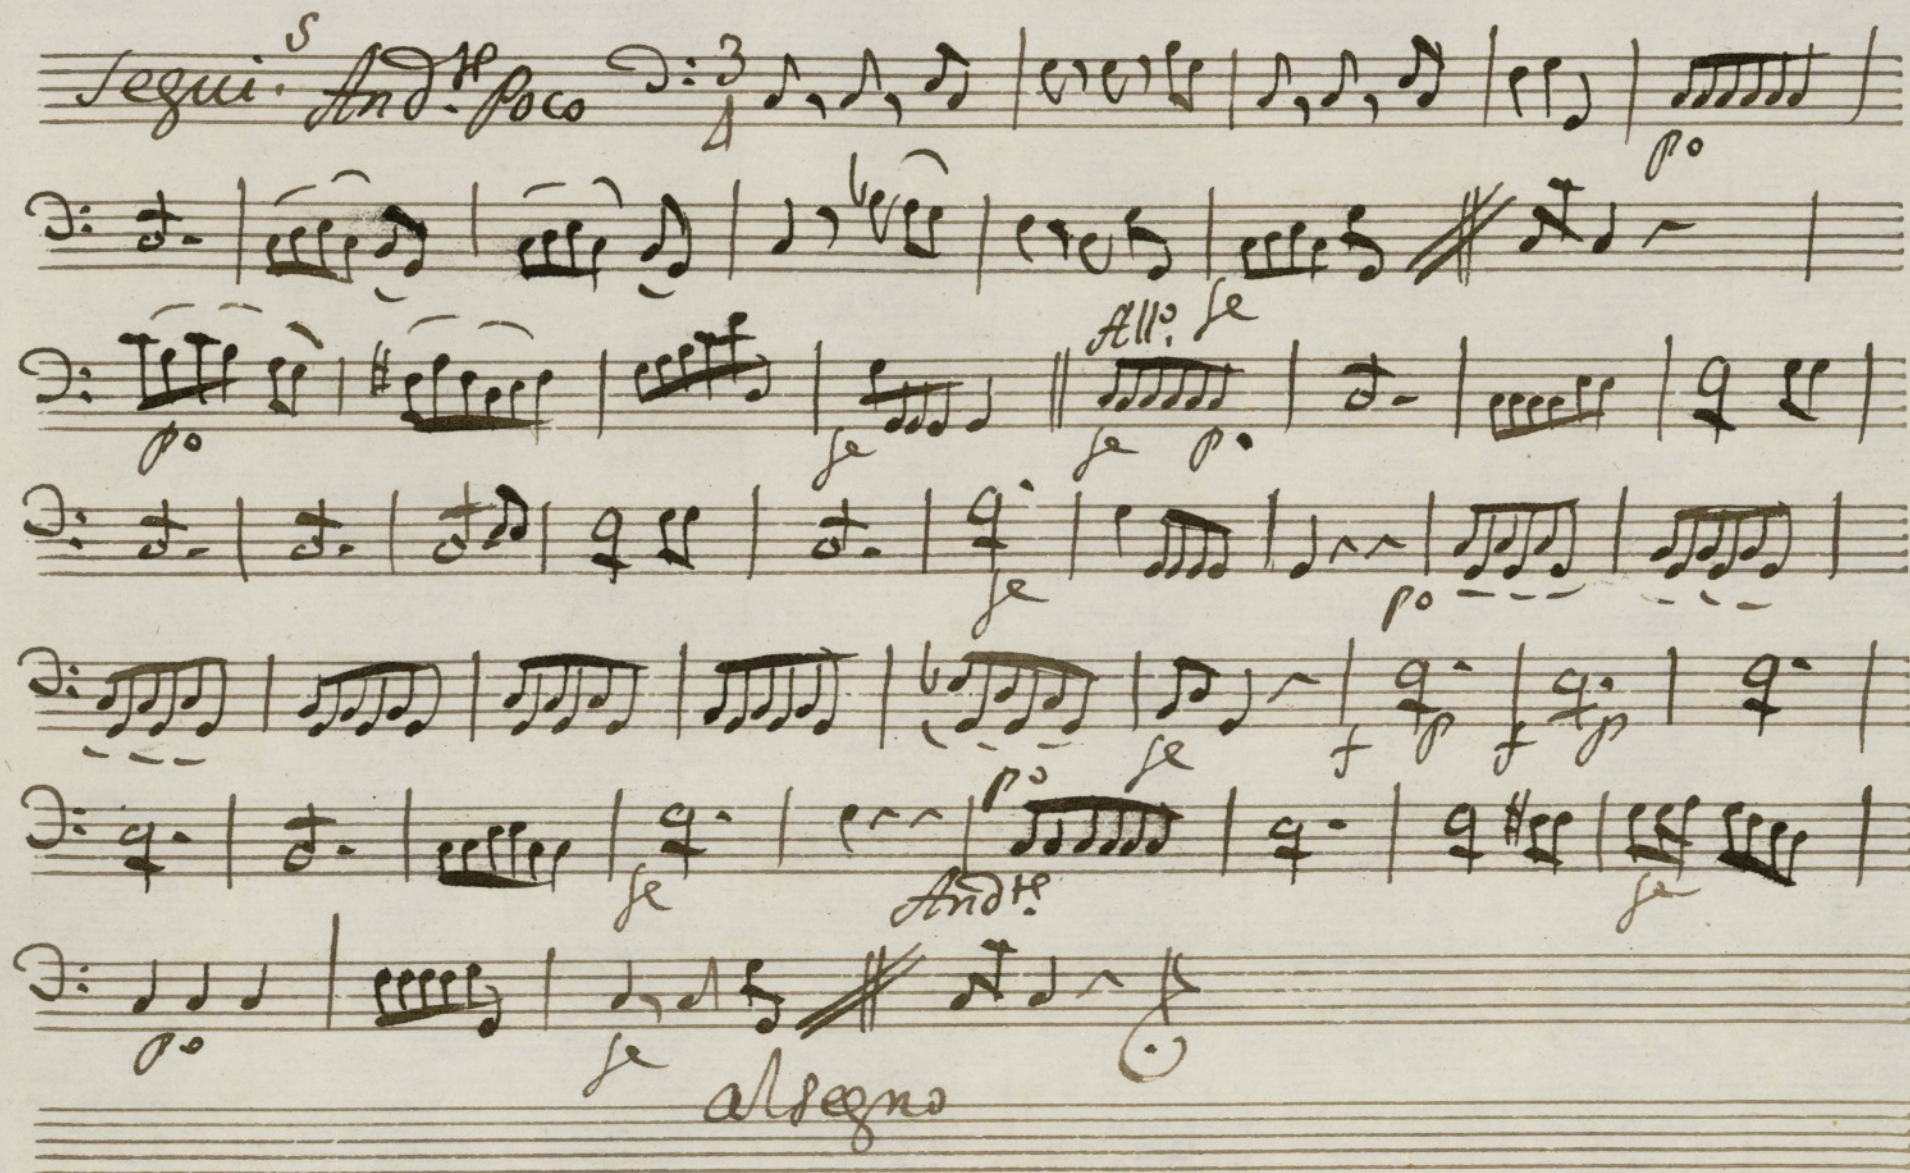 Segui. And.te Poco 3/4
po
fe
All.o
po fe fe p.
fe po
fe f p f p
po
fe And.te fe
po fe
al segno